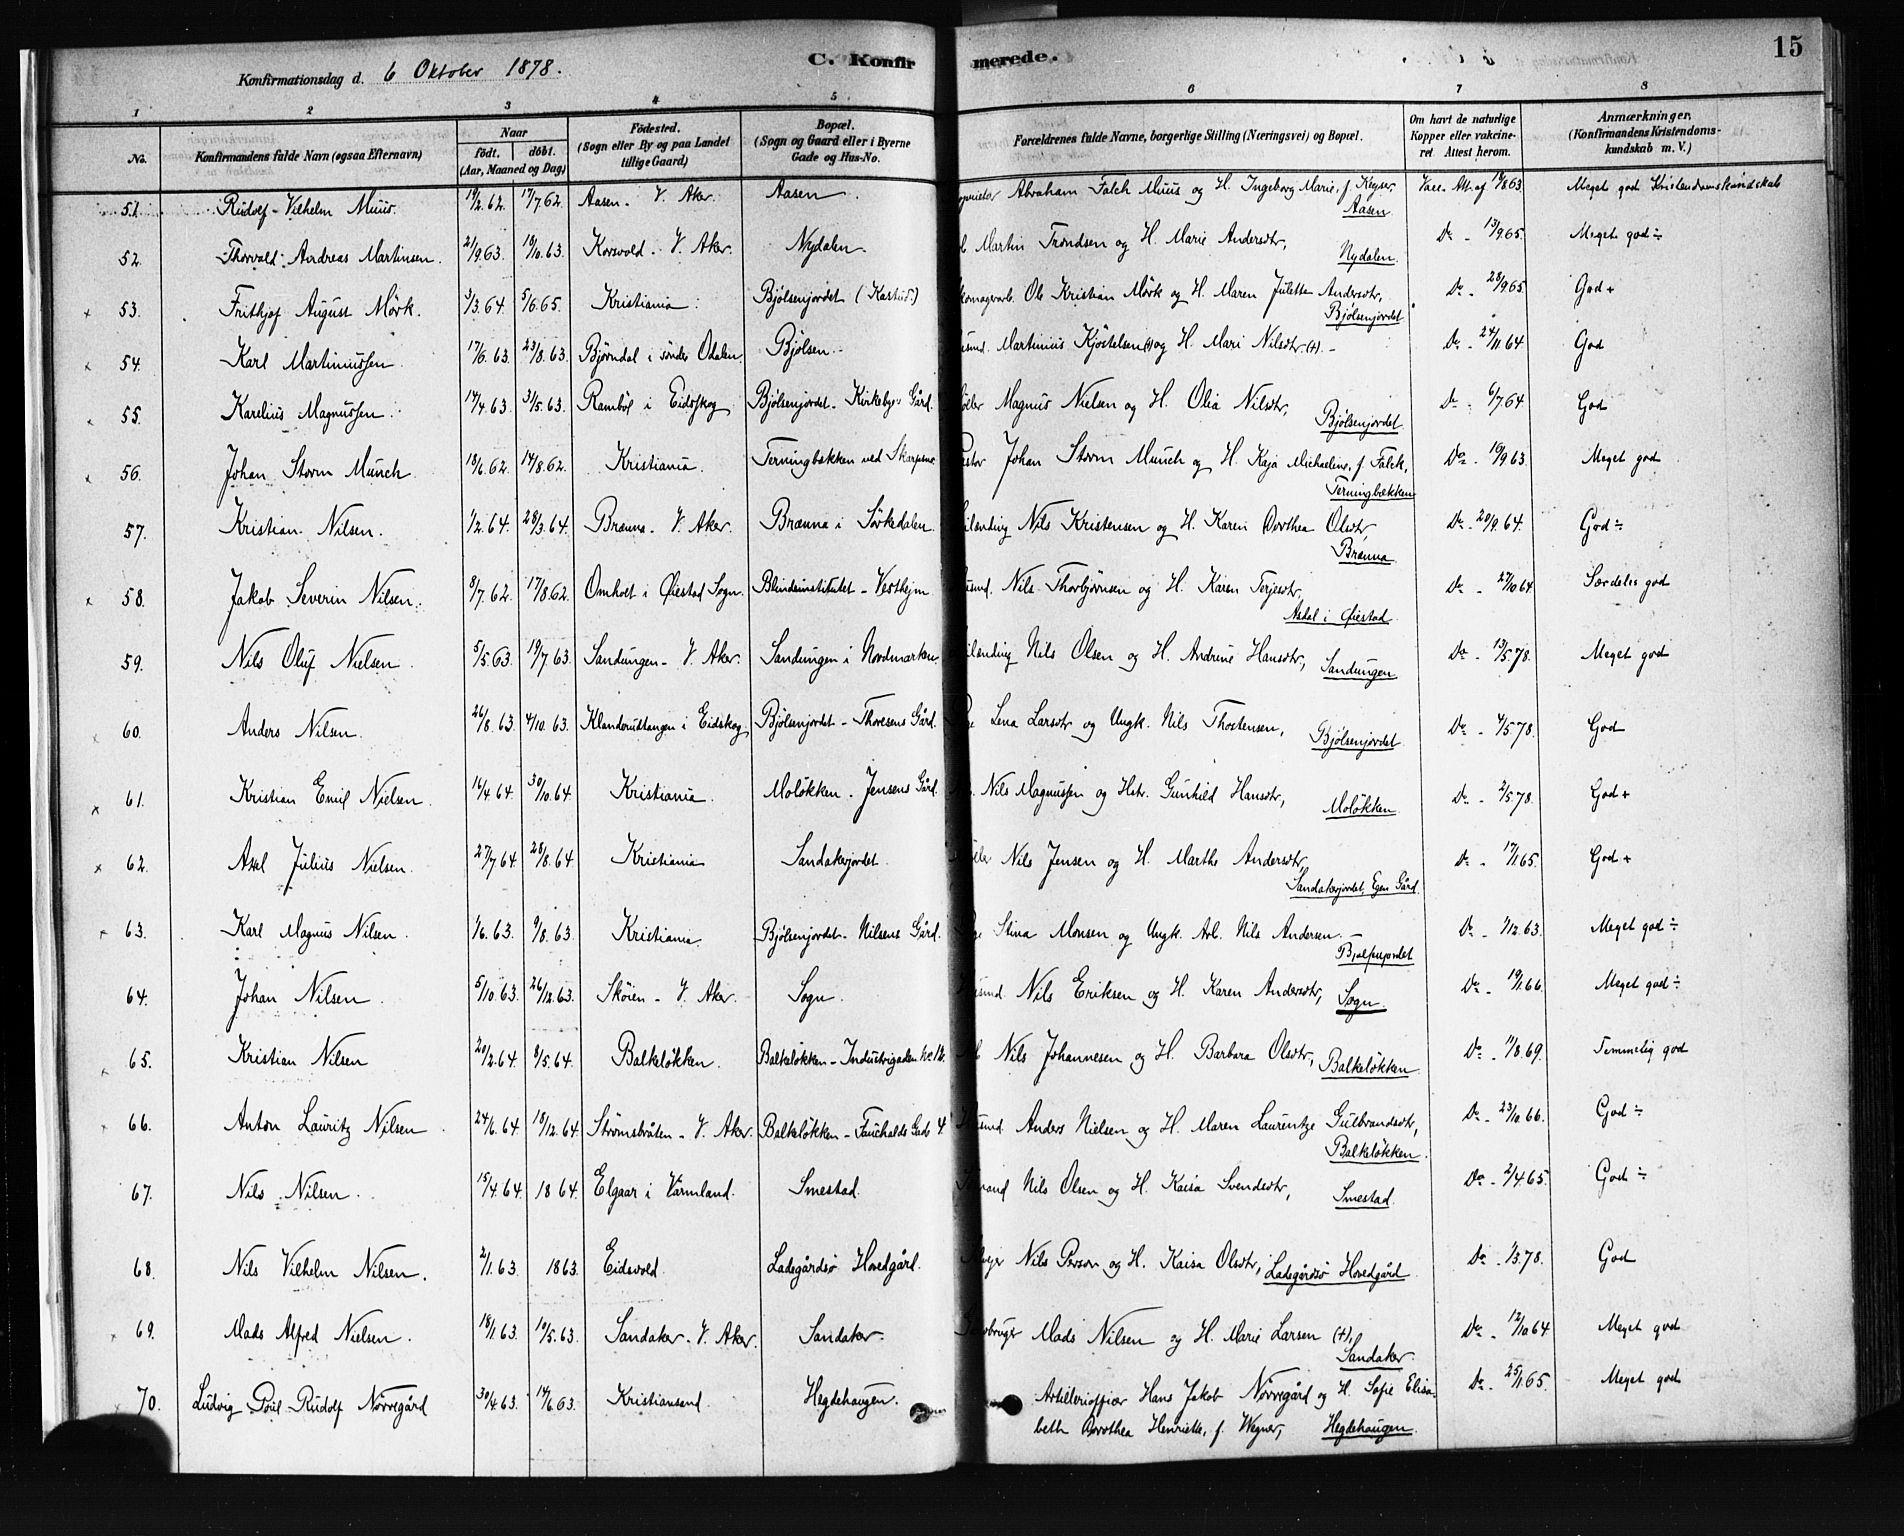 Konfirmationsdag d. 6 Oktober 1878. C. Konfirmerede. 15
1 2 3 4 5 6 7 8
No. Konfirmandens fulde Navn (ogsaa Efternavn) Naar født, døbt. (Aar, Maaned og Dag) Fødested. (Sogn eller By og paa Landet tillige Gaard) Bopæl. (Sogn og Gaard eller i Byerne Gade og Hus-No. Forældrenes fulde Navne, borgerlige Stilling (Næringsvei) og Bopæl. Om havt de naturlige Kopper eller vakcineret. Attest herom. Anmærkninger. (Konfirmandens Kristendomskundskab m. V.)
51. Rudolf Vilhelm Muus. 19/2.62. 17/7.62. Aasen. V. Aker. Aasen. Abraham Falch Muus og H. Ingeborg Marie, f. Keyser, Aasen Vacc. Att. af 19/8 63 Meget god Kristendomskundskab
52. Thorvald Andreas Martinsen. 21/9.63. 18/10.63. Korsvold. V. Aker. Nydalen. Martin Trondsen og H. Marie Andersdtr, Nydalen. Do - 13/9 65. Meget god ÷
53. Frithjof August Mörk. 3/3.64. 5/6.65. Kristiania. Bjølsenjordet Ole Kristian Mörk og H. Maren Julette Andersdtr, Bjølsenjordet Do - 28/9 65 God +
54. Karl Martiniussen. 17/6.63. 23/8.63. Bjørndal i søndre Odalen Bjølsen. Martinius Kjöstelsen (+) og H. Mari Nilsdtr. (+). Do - 24/11 64 God
55. Karelius Magnussen. 14/4.63. 31/5.63. Ramböl i Eidsskog Bjølsenjordet - Kirkebys Gård. Magnus Nielsen og H. Olia Nilsdtr, Bjølsenjordet Do - 6/7 64 God
56. Johan Storm Munch. 18/6.62. 14/8.62. Kristiania. Terningbækken ved Skarpsno Pastor Johan Storm Munch og H. Kaja Michaeline, f. Falck, Terningbækken Do - 19/9 63. Meget god
57. Kristian Nilsen. 1/2.64. 28/3.64. Brænna. V. Aker. Brænna i Sörkedalen. Nils Kristensen og H. Karen Dorothea Olsdtr, Brænna Do - 20/9.64. God ÷
58. Jakob Severin Nilsen. 8/7.62. 17/8.62. Omholt i Øiestad Sogn. Blindeinstitutet - Vesthejm Nils Thorbjörnsen og H. Karen Terjesdtr, Asdal i Øiestad Do - 27/10 64. Særdeles god
59. Nils Oluf Nielsen. 5/5.63. 19/7.63. Sandungen - V. Aker. Sandungen i Nordmarken Nils Olsen og H. Andrine Hansdtr, Sandungen Do - 13/5.78. Meget god
60. Anders Nilsen. 26/8.63. 4/10.63. Klanderudtangen i Eidskog Bjølsenjordet - Thoresens Gård. Lena Larsdtr og Ungk. Nils Thostensen, Bjølsenjordet Do - 4/5.78. God
61. Kristian Emil Nielsen. 16/4.64. 30/10.64. Kristiania. Moløkken. Jensens Gård. Nils Magnussen og Hstr. Gunhild Hansdtr, Moløkken Do - 2/5.78. God +
62. Axel Julius Nielsen. 27/7.64 28/8.64 Kristiania Sandakerjordet. Nils Jensen og H. Marthe Andersdtr, Sandakerjordet, Egen Gård. Do - 17/1.65. God +
63. Karl Magnus Nilsen. 1/6.63. 9/8.63. Kristiania Bjølsenjordet - Nilsens Gård. Stina Monsen og Ungk. Arb. Nils Andersen. Do - 1/12.63. Meget god ÷
64. Johan Nilsen. 5/10.63. 26/12.63. Sköien - V. Aker. Sogn. Nils Eriksen og H. Karen Andersdtr, Sogn. Do - 19/1.66. Meget god ÷
65. Kristian Nilsen 20/2.64 9/5.64 Balkeløkken. Balkeløkken - Industrigaden Nils Johannesen og H. Barbara Olsdtr, Balkeløkken Do - 11/8.69. Temmelig god
66. Anton Lauritz Nilsen 24/6.64 18/12.64 Strömsbråten - V. Aker. Balkeløkken - Fauchalds Gade 4. Anders Nielsen og H. Maren Laurentze Gulbrandsdtr, Balkeløkken. Do - 23/10.66. God ÷
67. Nils Nilsen. 15/4.64. 1864. Elgaar i Värmland. Smestad. Nils Olsen og H. Kaisa Svendsdtr, Smestad. Do - 2/4.65. God ÷
68. Nils Vilhelm Nilsen. 2/1.63. 1863. Eidsvold. Ladegårdsø Hovedgård. Nils Person og H. Kaisa Olsdtr, Ladegårdsø Hovedgård Do - 1/3.78. God
69. Mads Alfred Nielsen. 18/1.63. 10/5.63. Sandaker - V. Aker. Sandaker. Mads Nilsen og H. Marie Larsen (+), Sandaker. Do - 12/10 64 Meget god
70. Ludvig Poul Rudolf Nörregård 30/4.63. 14/6.63. Kristianssand Hegdehaugen. Artilleriofficer Hans Jakob Nörregård og H. Sofie Elisabeth Dorothea Henriette, f. Wegner, Hegdehaugen. Do - 25/1.65. Meget god